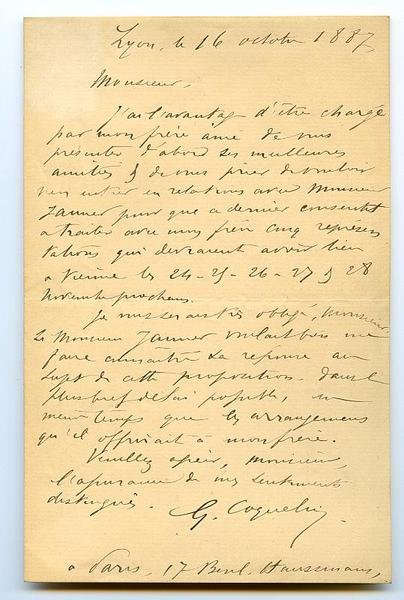 Lyon, le 16 octobre 1887,
Monsieur,
J'ai l'avantage d'être chargé
par mon frère ainé de vous
présenter d'abord ses meilleures
amitiés & de vous prier de vouloir
bien entrer en relations avec Monsieur
Jauner pour que ce dernier consentit
à traiter avec mon frère cinq représen
tations qui devraient avoir lieu
à Vienne les 24 - 25 - 26 - 27 & 28
Novembre prochain.
Je vous serais très obligé, Monsieur
si Monsieur Jauner voulait bien me
faire connaître sa réponse au
sujet de cette proposition dans le
plus bref délai possible, en
même temps que les arrangements
qu'il offrirait à mon frère.
Veuillez agréer, monsieur,
l'assurance de mes sentiments
distingués.
G. Coquelin
à Paris, 17 Boul. Haussmann,